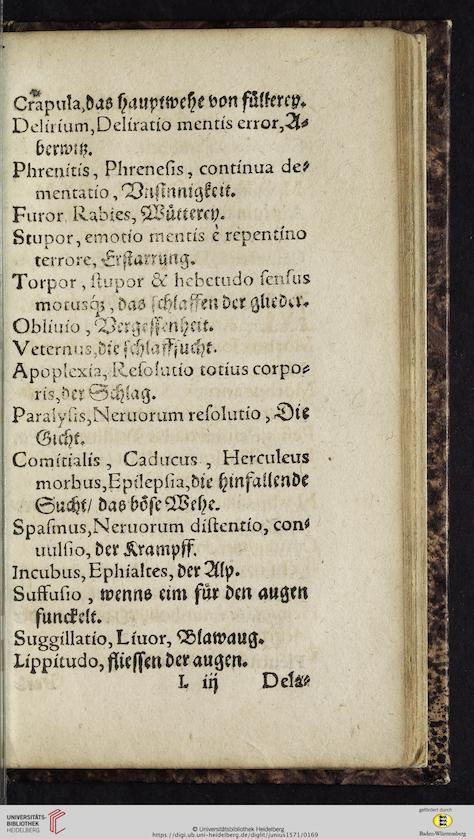 Crapula, das hauptwehe von füllerey.
Delirium, Deliratio mentis error, A⸗
berwitz.
Phrenitis, Phrenesis, continua de⸗
mentatio, Vnsinnigkeit.
Furor Rabies, Wütterey.
Stupor, emotio mentis è repentino
terrore, Erstarrung.
Torpor, stupor & hebetudo sensus
motusq́;, das schlaffen der glieder.
Obliuio, Vergessenheit.
Veternus, die schlaffsucht.
Apoplexia, Resolutio totius corpo⸗
ris, der Schlag.
Paralysis, Neruorum resolutio, Die
Gicht.
Comitialis, Caducus, Herculeus
morbus, Epilepsia, die hinfallende
Sucht/ das böse Wehe.
Spasmus, Neruorum distentio, con⸗
uulsio, der Krampff.
Incubus, Ephialtes, der Alp.
Suffusio, wenns eim für den augen
funckelt.
Suggillatio, Liuor, Blawaug.
Lippitudo, fliessen der augen.
L iij Dela⸗
UNIVERSITÄTS-
BIBLIOTHEK
HEIDELBERG
© Universitätsbibliothek Heidelberg
https://digi.ub.uni-heidelberg.de/diglit/junius1571/0169
gefördert durch
Baden-Württemberg